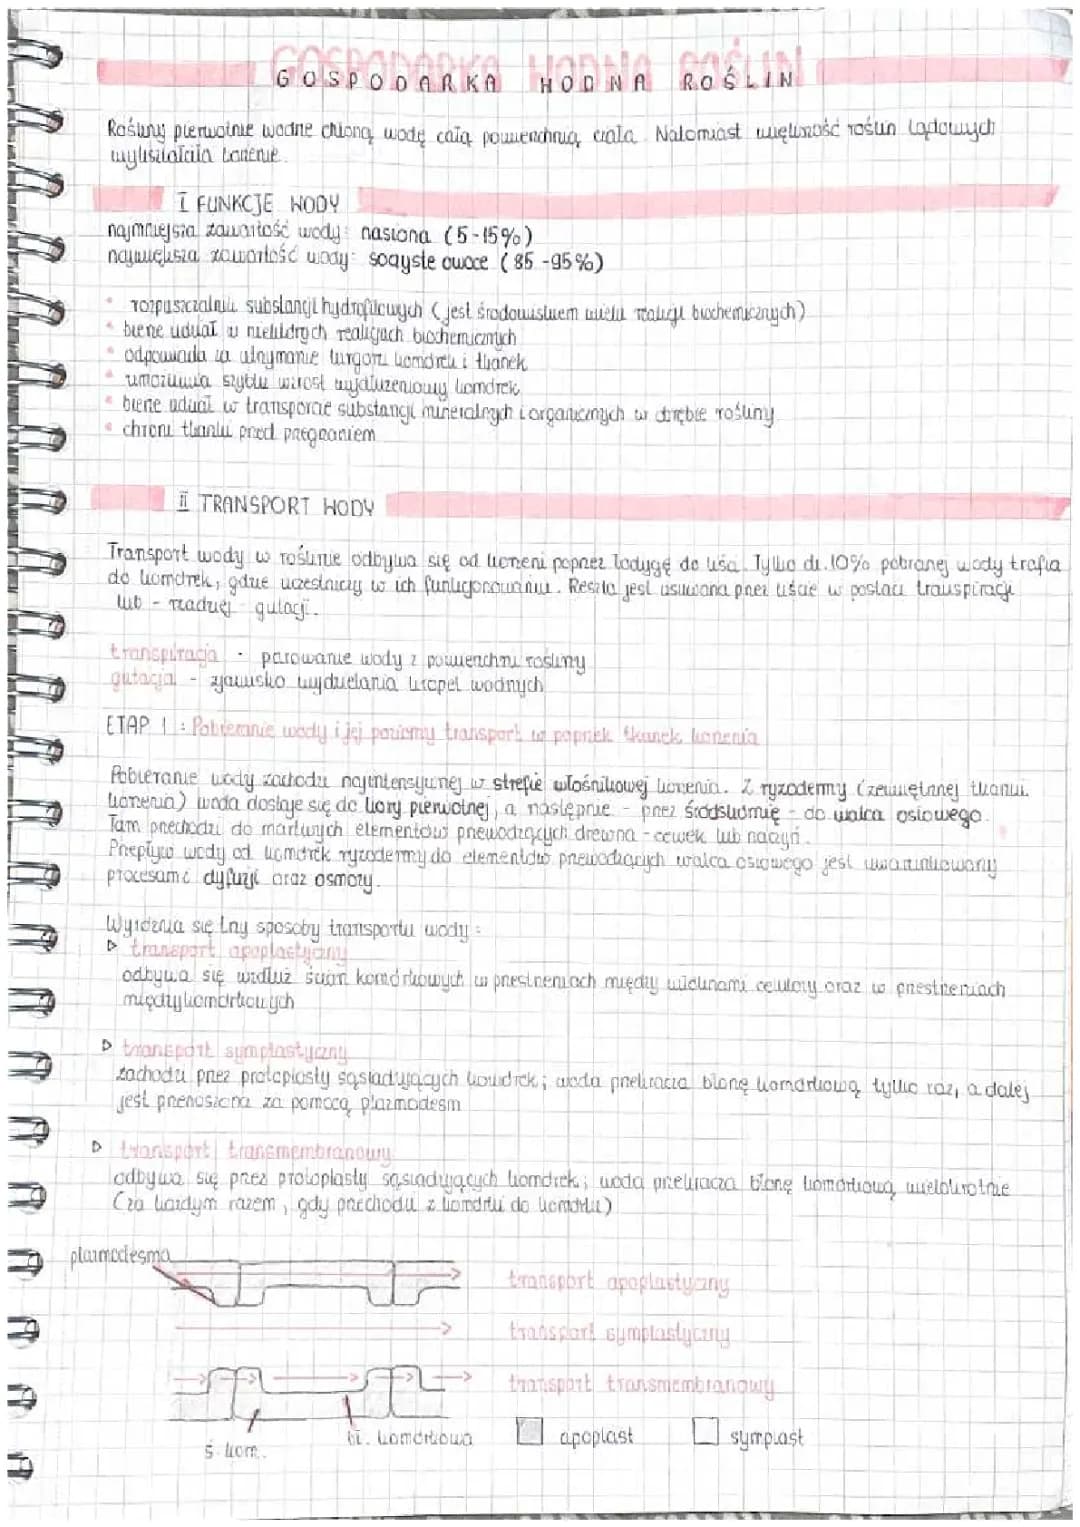 GOSPODARKA WODNA ROŚLIN
GOSPODARKA WODNA ROŚLIN
Rośliny pierwotnie wodne chłoną wodę całą powierzchnią ciała. Natomiast większość roślin lądowych
wykształciła korzenie.
I FUNKCJE WODY
najmniejsza zawartość wody: nasiona (5-15%)
największa zawartość wody: soczyste owoce (85-95%)
• rozpuszczalnik substancji hydrofilowych (jest środowiskiem wielu reakcji biochemicznych)
• bierze udział w niektórych reakcjach biochemicznych
• odpowiada za utrzymanie turgoru komórek i tkanek
• umożliwia szybki wzrost wydłużeniowy komórek
• bierze udział w transporcie substancji mineralnych i organicznych w obrębie rośliny
• chroni tkanki przed przegrzaniem
II TRANSPORT WODY
Transport wody w roślinie odbywa się od korzeni poprzez łodygę do liści. Tylko ok. 10% pobranej wody trafia
do komórek, gdzie uczestniczy w ich funkcjonowaniu. Reszta jest usuwana przez liście w postaci transpiracji
lub - rzadziej - gutacji.
transpiracja - parowanie wody z powierzchni rośliny
gutacja - zjawisko wydzielania kropel wodnych
ETAP 1: Pobieranie wody i jej poziomy transport w poprzek tkanek korzenia
Pobieranie wody zachodzi najintensywniej w strefie włośnikowej korzenia. Z ryzodermy (zewnętrznej tkanki
korzenia) woda dostaje się do kory pierwotnej, a następnie - przez śródskórnię - do walca osiowego.
Tam przechodzi do martwych elementów przewodzących drewna - cewek lub naczyń.
Przepływ wody od komórek ryzodermy do elementów przewodzących walca osiowego jest uwarunkowany
procesami dyfuzji oraz osmozy.
Wyróżnia się trzy sposoby transportu wody:
▷ transport apoplastyczny
odbywa się wzdłuż ścian komórkowych w przestrzeniach między włóknami celulozy oraz w przestrzeniach
międzykomórkowych
▷ transport symplastyczny
zachodzi przez protoplasty sąsiadujących komórek; woda przekracza błonę komórkową tylko raz, a dalej
jest przenoszona za pomocą plazmodesm
▷ transport transmembranowy
odbywa się przez protoplasty sąsiadujących komórek; woda przekracza błonę komórkową wielokrotnie
(za każdym razem, gdy przechodzi z komórki do komórki)
plazmodesma
transport apoplastyczny
transport symplastyczny
transport transmembranowy
ś. kom.
bł. komórkowa
apoplast
symplast